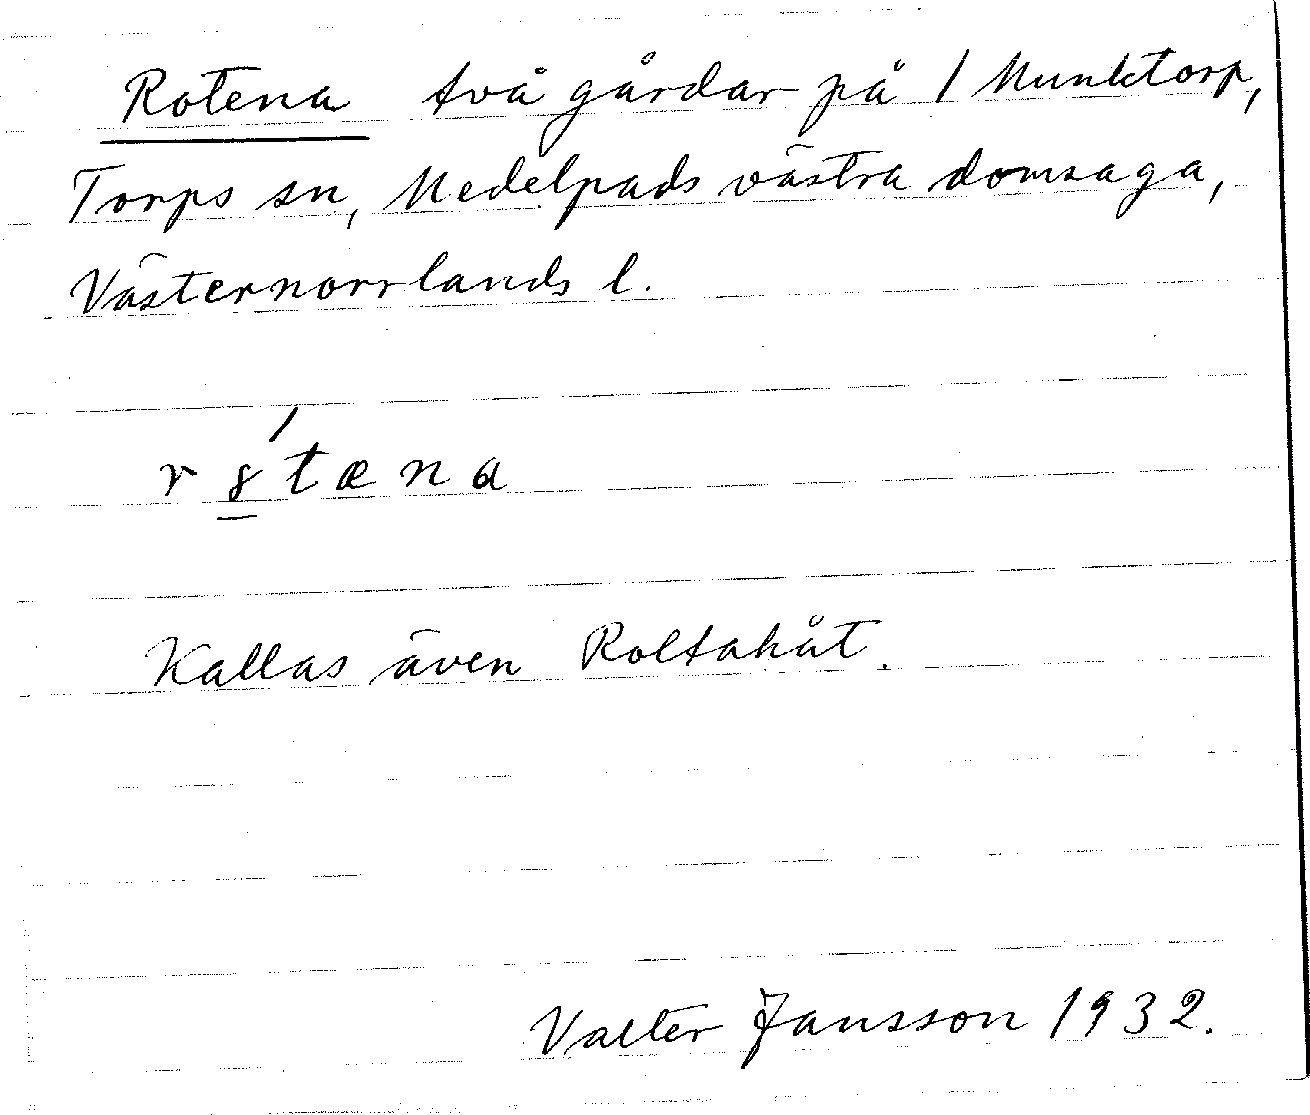 Rotena två gårdar på 1 Munktorp,
Torps sn, Medelpads västra domsaga,
Västernorrlands l.
r8́tæna
Kallas även Roltahåt.
Valter Jansson 1932.